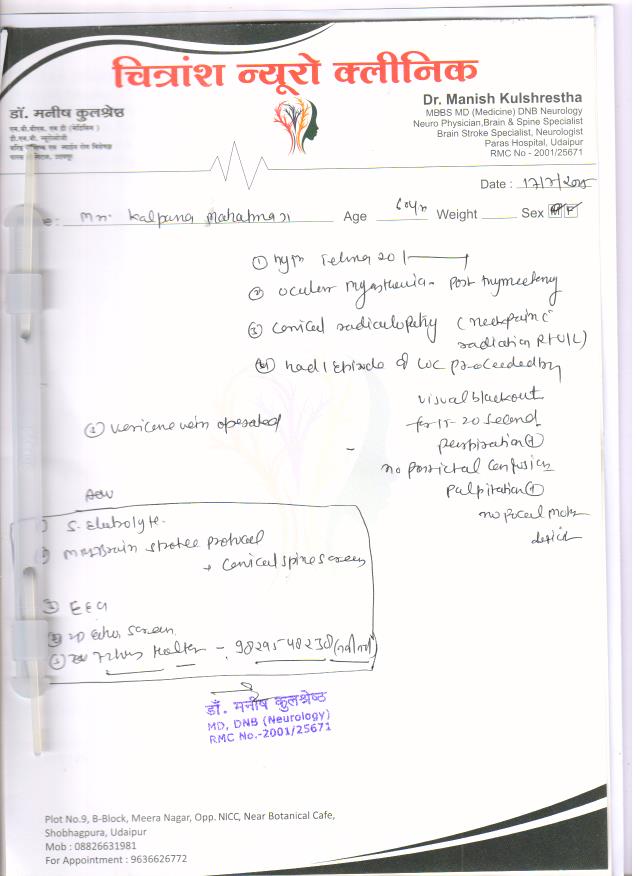 चित्रांश न्यूरो क्लीनिक
डॉ. मनीष कुलश्रेष्ठ
एम.बी.बी.एस. एम डी (मेडिसिन)
डी.एन.बी. न्यूरोलॉजी
Dr. Manish Kulshrestha
MBBS MD (Medicine) DNB Neurology
Neuro Physician,Brain & Spine Specialist
Brain Stroke Specialist, Neurologist
Paras Hospital, Udaipur
RMC No - 2001/25671
Date : 17/7/2025
e: Mr. Kalpana Age 60yr Weight Sex M F
① hypn Telma 20
② ocular myasthenia - post thymectomy
③ cervical radiculopathy (neck pain c̄
radiation Rt UL)
④ had 1 episode of LOC preceeded by
visual blackout
for 15-20 second
perspiration ⊕
no postictal confusion
palpitation ⊕
no focal motor
deficit
② varicose vein operated
Adv
① S. Electrolyte.
② MRI Brain stroke protocol
+ Cervical spine screen
③ EEG
④ 2D Echo screen
⑤ 72 hrs Holter - 9829548238
डॉ. मनीष कुलश्रेष्ठ
MD, DNB (Neurology)
RMC No.-2001/25671
Plot No.9, B-Block, Meera Nagar, Opp. NICC, Near Botanical Cafe,
Shobhagpura, Udaipur
Mob : 08826631981
For Appointment : 9636626772